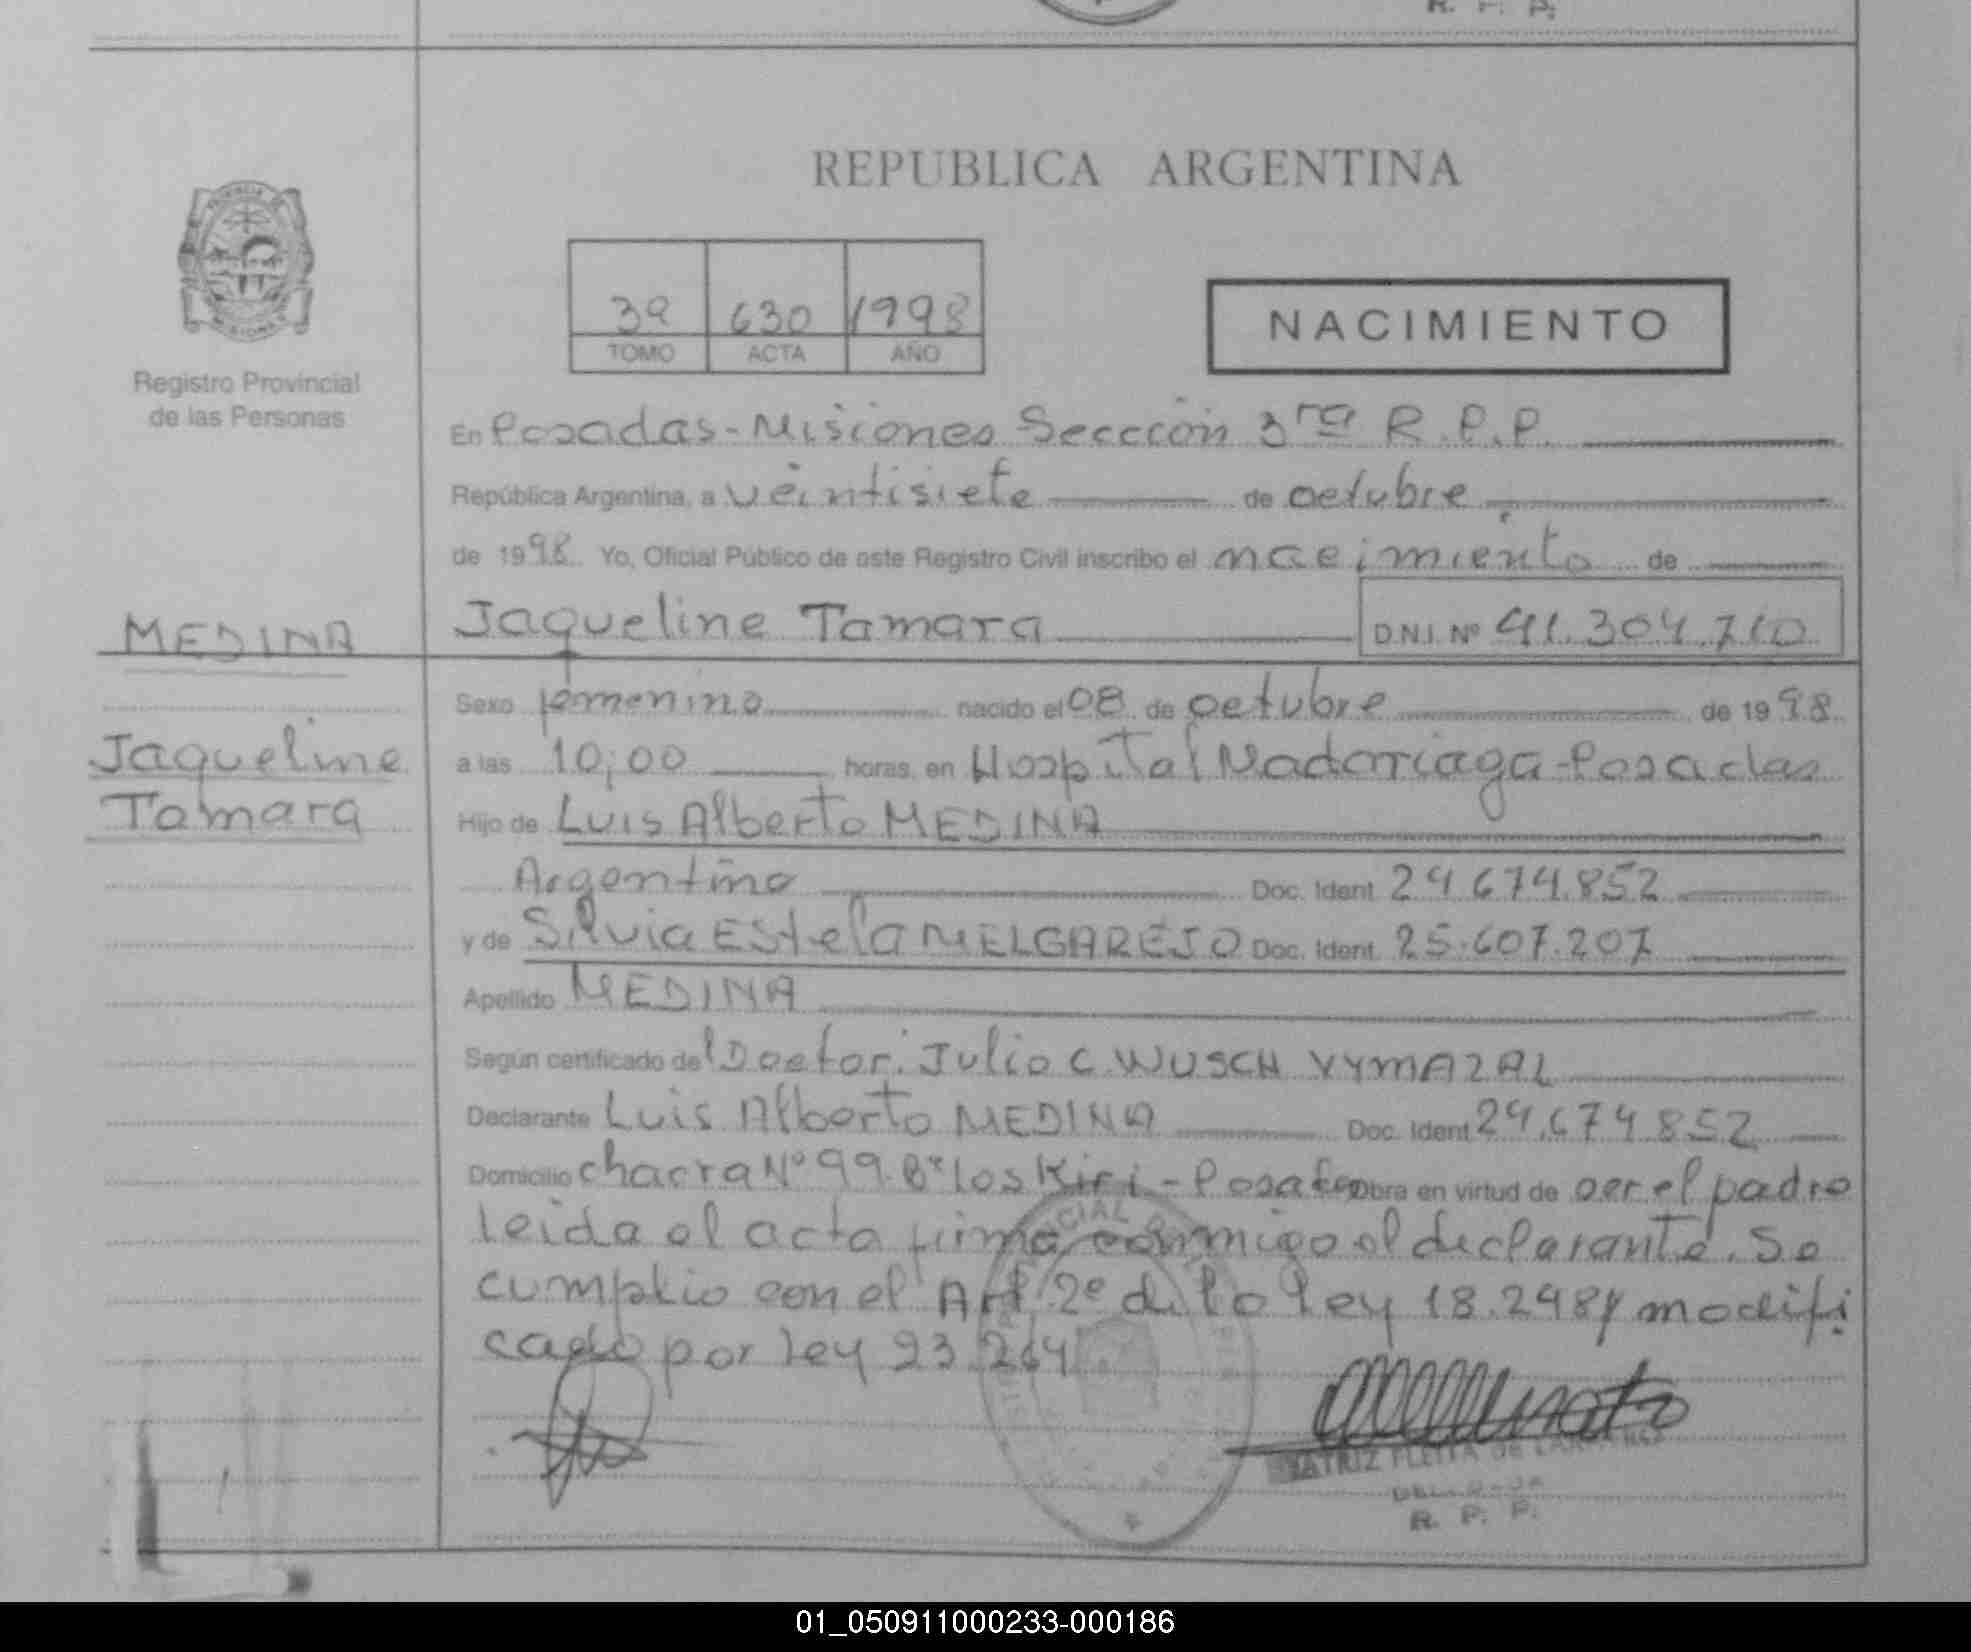 R. P. P.
REPUBLICA ARGENTINA
39 630 1998
TOMO ACTA AÑO
NACIMIENTO
MISIONES
Registro Provincial
de las Personas
En Posadas-Misiones Seccción 3ra R.P.P.
República Argentina, a veintisiete de octubre
de 1998. Yo, Oficial Público de este Registro Civil inscribo el nacimiento de
MEDINA
Jaqueline Tamara D.N.I. Nº 41.304.710
Sexo femenino nacido el 08 de octubre de 1998
Jaqueline
Tamara
a las 10;00 horas, en Hospital Madariaga-Posadas
Hijo de Luis Alberto MEDINA
Argentino Doc. Ident. 24.674.852
y de Silvia Estela MELGAREJO Doc. Ident. 25.607.207
Apellido MEDINA
Según certificado del Doctor. Julio C. WUSCH VYMAZAL
Declarante Luis Alberto MEDINA Doc. Ident. 24.674.852
Domicilio chacra Nº 99. Bº los Kiri - Obra en virtud de ser el padre
leida el acta firma conmigo el declarante. Se
cumplio con el Art 2º de la ley 18.248 y modifi
cado por ley 23.264
PLEITA DE
R. P. P.
01_050911000233-000186